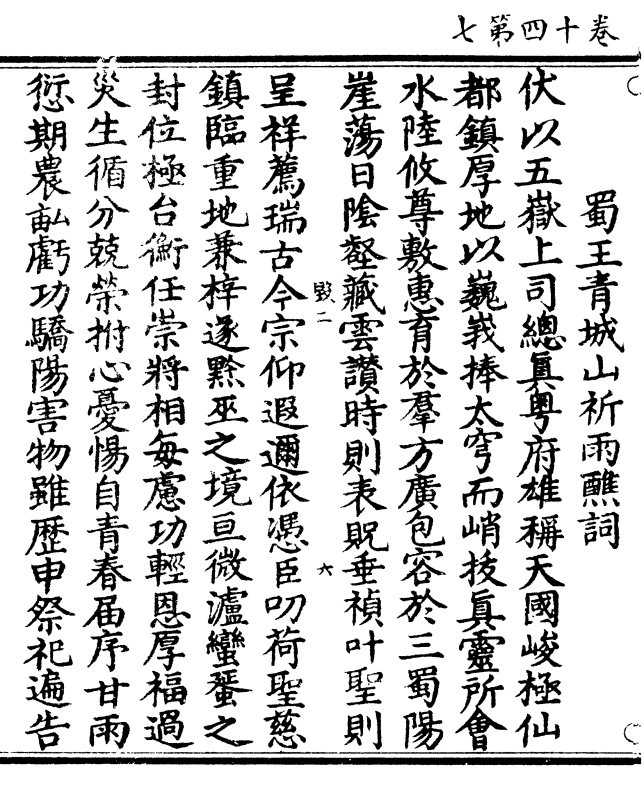 卷十四第七
蜀王青城山祈雨醮詞
伏以五嶽上司總眞粤府雄稱天國峻極仙
都鎮厚地以巍峩捧太穹而峭拔眞靈所會
水陸攸尊敷惠育於羣方廣包容於三蜀陽
崖蕩日陰壑藏雲讚時則表貺垂禎叶聖則
毀二 六
呈祥薦瑞古今宗仰遐邇依憑臣叨荷聖慈
鎮臨重地兼梓遂黔巫之境亘微瀘蠻蜑之
封位極台衡任崇將相每慮功輕恩厚福過
災生循分兢榮拊心憂惕自青春届序甘雨
愆期農畝虧功驕陽害物雖歷申祭祀遍告